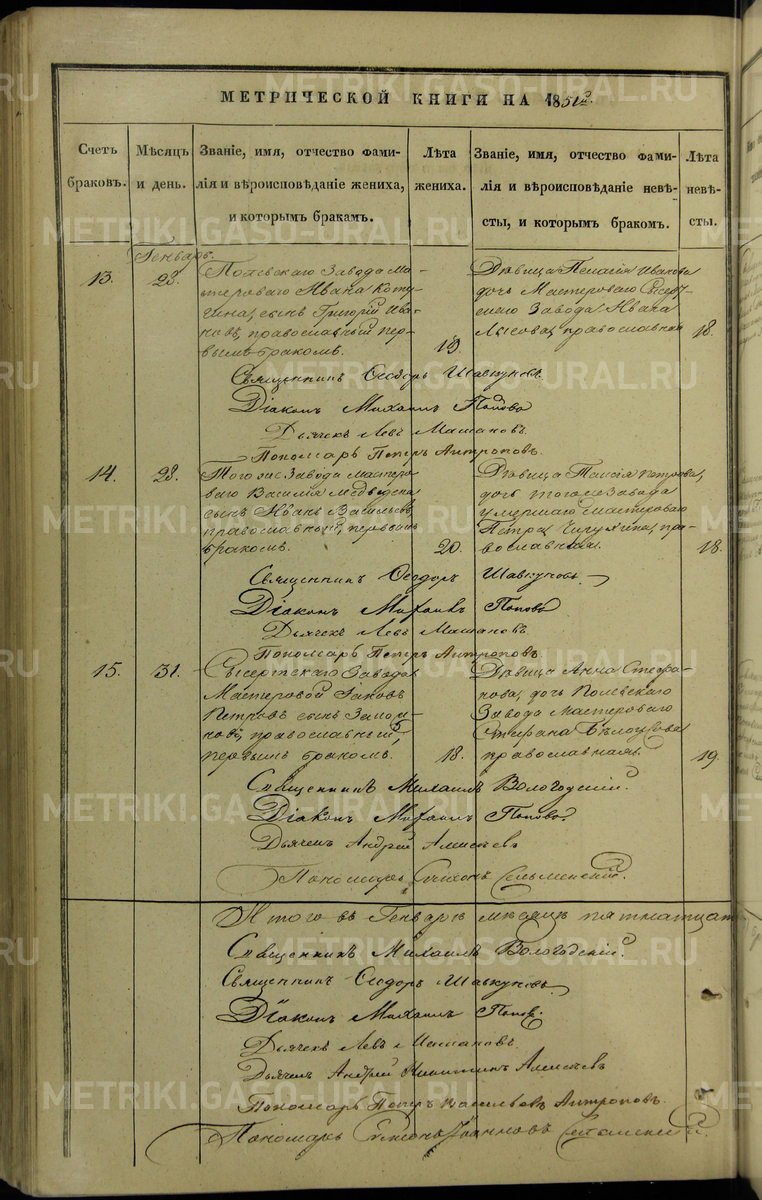 МЕТРИЧЕСКОЙ КНИГИ НА 1851й.
Счетъ браковъ.
Мѣсяцъ и день.
Званіе, имя, отчество фами-
лія и вѣроисповѣданіе жениха,
и которымъ бракамъ.
Лѣта жениха.
Званіе, имя, отчество фами-
лія и вѣроисповѣданіе невѣ-
сты, и которымъ бракомъ.
Лѣта невѣ-
сты.
Генварь.
13.
28.
Завода Ма-
стероваго Ивана
сынъ Григорій Ива-
новъ, православный пер-
вымъ бракомъ.
19.
Дѣвица Пелагія Иванова
дочь Мастероваго Сысерт-
скаго Завода Ивана
Лысова, православная
18.
Священникъ Ѳеодоръ Шавкуновъ.
Діаконъ Михаилъ Поповъ
Дьячекъ Левъ Машановъ.
Пономарь Петръ Антроповъ.
14.
28.
Того же Завода мастеро-
ваго Василія Медведева
сынъ Иванъ Васильевъ,
православный, первымъ
бракомъ.
20.
Дѣвица Таисія Петрова,
дочь того же Завода
умершаго Мастероваго
Петра пра-
вославная.
18.
Священникъ Ѳеодоръ Шавкуновъ.
Діаконъ Михаилъ Поповъ
Дьячекъ Левъ Машановъ
Пономарь Петръ Антроповъ
15.
31.
Сысертскаго Завода
Мастеровой Іаковъ
Петровъ сынъ
православный,
первымъ бракомъ.
18.
Дѣвица Анна Стефа-
нова, дочь Полевскаго
Завода Мастероваго
Стефана Бѣлоусова
православная.
19.
Священникъ Михаилъ Вологодскій.
Діаконъ Михаилъ Поповъ.
Дьячекъ Андрей Алексѣевъ
Пономарь Сельменскій.
Итого въ Генварѣ мѣсяцѣ пятнатцать
Священникъ Михаилъ Вологодскій.
Священникъ Ѳеодоръ Шавкуновъ.
Діаконъ Михаилъ Поповъ.
Дьячекъ Левъ Машановъ.
Дьячекъ Андрей Никитинъ Алексѣевъ
Пономарь Петръ Васильевъ Антроповъ.
Пономарь Іоанновъ
METRIKI.GASO-URAL.RU